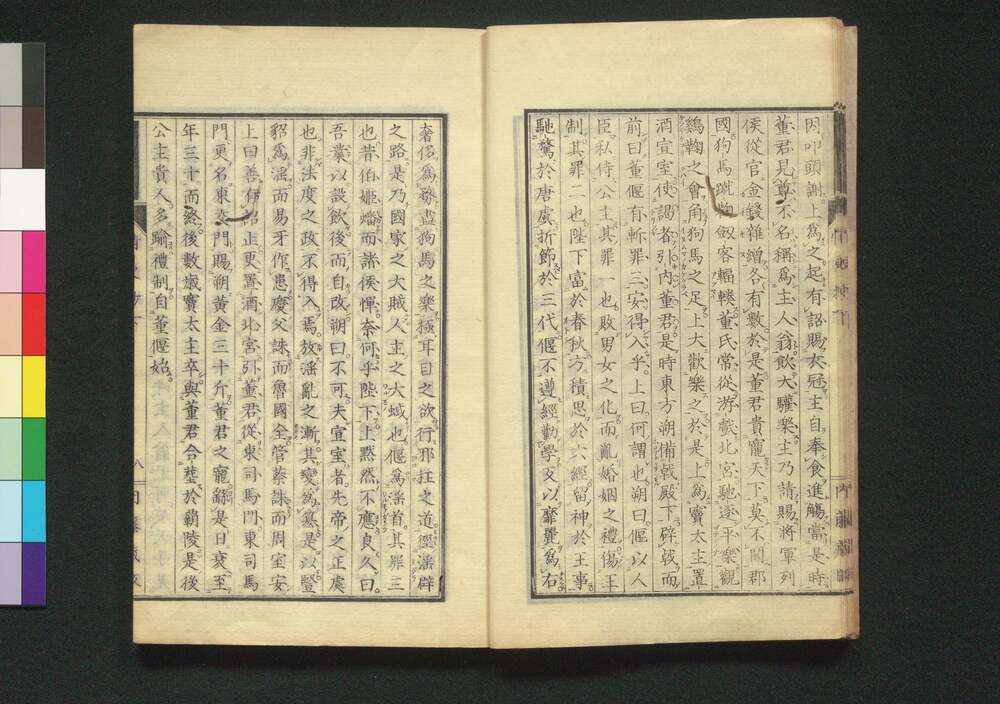 因叩頭謝上爲之起有詔賜衣冠主自奉食進觴當是時
董君見尊不名稱爲主人翁飲大驩樂主乃請賜將軍列
侯從官金錢雜繒各有數於是董君貴寵天下莫不聞郡
國狗馬蹴鞠劔客輻輳董氏常從游戲北宮馳逐平樂觀
鷄鞠之會角狗馬之足上大歡樂之於是上爲竇太主置
酒宣室使謁者引内董君是時東方朔備戟殿下辟戟而
前曰董偃有斬罪三安得入乎上曰何謂也朔曰偃以人
臣私侍公主其罪一也敗男女之化而亂婚姻之禮傷王
制其罪二也陛下富於春秋方積思於六經留神於王事
馳騖於唐虞折節於三代偃不遵經勸學反以靡麗爲右
奢侈爲務盡狗馬之樂極耳目之欲行邪枉之道徑淫辟
之路是乃國家之大賊人主之大蜮也偃爲淫首其罪三
也昔伯姬燔而諸侯憚奈何乎陛下上黙然不應良久曰
吾業以設飲後而自改朔曰不可夫宣室者先帝之正處
也非法度之政不得入焉故淫亂之漸其變爲簒是以豎
貂爲淫而易牙作患慶父誅而魯國全管蔡誅而周室安
上曰善有詔止更置酒北宮引董君從東司馬門東司馬
門更名東交門賜朔黄金三十斤董君之寵繇是日衰至
年三十而終後數歲竇太主卒與董君合葬於霸陵是後
公主貴人多踰禮制自董偃始